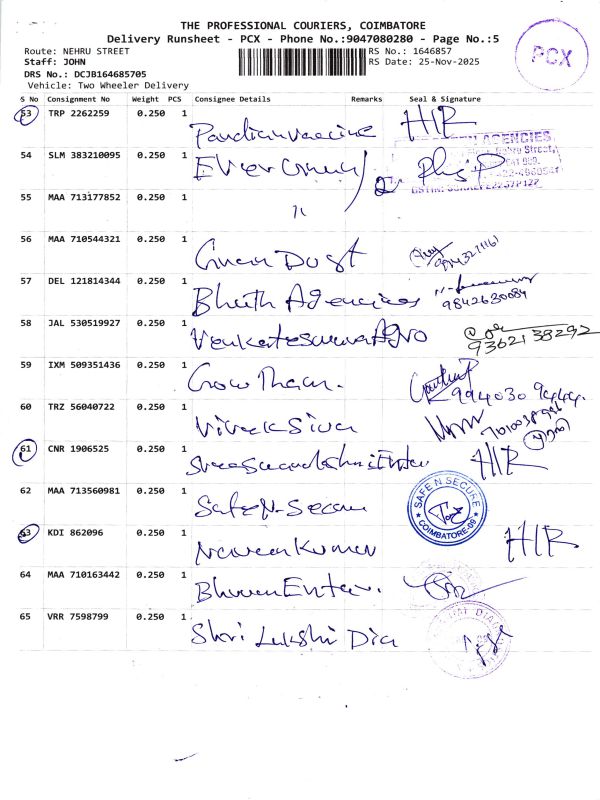 THE PROFESSIONAL COURIERS, COIMBATORE
Delivery Runsheet - PCX - Phone No.:9047080280 - Page No.:5
Route: NEHRU STREET
Staff: JOHN
DRS No.: DCJB164685705
Vehicle: Two Wheeler Delivery
RS No.: 1646857
RS Date: 25-Nov-2025
PCX
S No Consignment No Weight PCS Consignee Details Remarks Seal & Signature
53 TRP 2262259 0.250 1 Pandian vaccine H/R
54 SLM 383210095 0.250 1 Ever
AGENCIES
Nehru Street,
55 MAA 713177852 0.250 1 "
56 MAA 710544321 0.250 1 Dust
57 DEL 121814344 0.250 1 Agencies 9842630084
58 JAL 530519927 0.250 1 Venkateswara Agro 9362138292
59 IXM 509351436 0.250 1 Grow 994030 9444
60 TRZ 56040722 0.250 1 Vivek Siva
61 CNR 1906525 0.250 1 H/R
62 MAA 713560981 0.250 1 Safe N Secure
SAFE N SECURE
COIMBATORE-09
63 KDI 862096 0.250 1 Naveen Kumar H/R
64 MAA 710163442 0.250 1
65 VRR 7598799 0.250 1 Shri Lakshi Dia